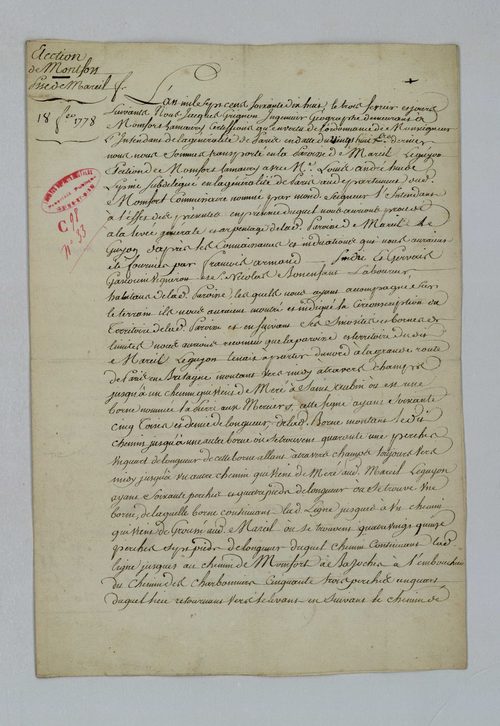 Election
de Montfort
Psse de Mareil
18 fev. 1778
C 98
N° 33
L'an mil sept cens soixante dix huit, le trois fevrier et jours
suivants Nous Jacques Grignon Ingenieur Geographe demeurant a
Montfort Lamaury certifions qu'en vertu de l'ordonnance de Monseigneur
L'Intendant de la generalité de Paris en datte du vingt huit Xbre dernier
nous nous sommes transporté en la Paroisse de Mareil Leguyon
Election de Montfort Lamaury avec Me. Louis andré
Subdelegué en la generalité de Paris au departement dud.
Montfort Commissaire nommé par mond. Seigneur l'Intendant
a l'effet des presentes en presence duquel nous aurions procedé
a la levée generale et arpentage de lad. Paroisse de Mareil le
Guyon d'apres les Connaissances et indications qui nous auraient
été fournies par françois armand Le Gervais
vigneron et Nicolas Bonenfant Laboureur
habitans de lad. Paroisse, lesquels nous ayant accompagné sur
le terrain ils nous auraient montré et indiqué la Circonscription du
Territoire de lad. Paroisse et en suivant ses limites et bornes de
limites nous aurions reconnu que la paroisse et territoire du dit
Mareil Leguyon tenait a partir du nord a la grande route
de Paris en Bretagne montant vers midy atravers champs
jusqu'a un chemin qui vient de Meré a Saint aubin ou est une
borne nommée la pierre aux Merciers, cette ligne ayant soixante
cinq Toises et demie de longueur, de lad. Borne montant le dit
chemin jusqu'a une autre borne ou se trouvent quarante une perches
de longueur de cette borne allant atravers champs toujours vers
midy jusqu'a un autre chemin qui vient de Meré aud. Mareil Leguyon
ayant soixante perches et quatre pieds de longueur ou se trouve une
borne, de laquelle borne continuant lad. Ligne jusqu'a un chemin
qui vient de aud. Mareil ou se trouvent quatre vingt quinze
perches sept pieds de longueur duquel chemin continuant lad.
ligne jusques au chemin de Montfort a Bazoches a l'embouchure
du chemin des charbonniers Cinquante trois perches un quart
duquel lieu retournant vers le levant en suivant le chemin de